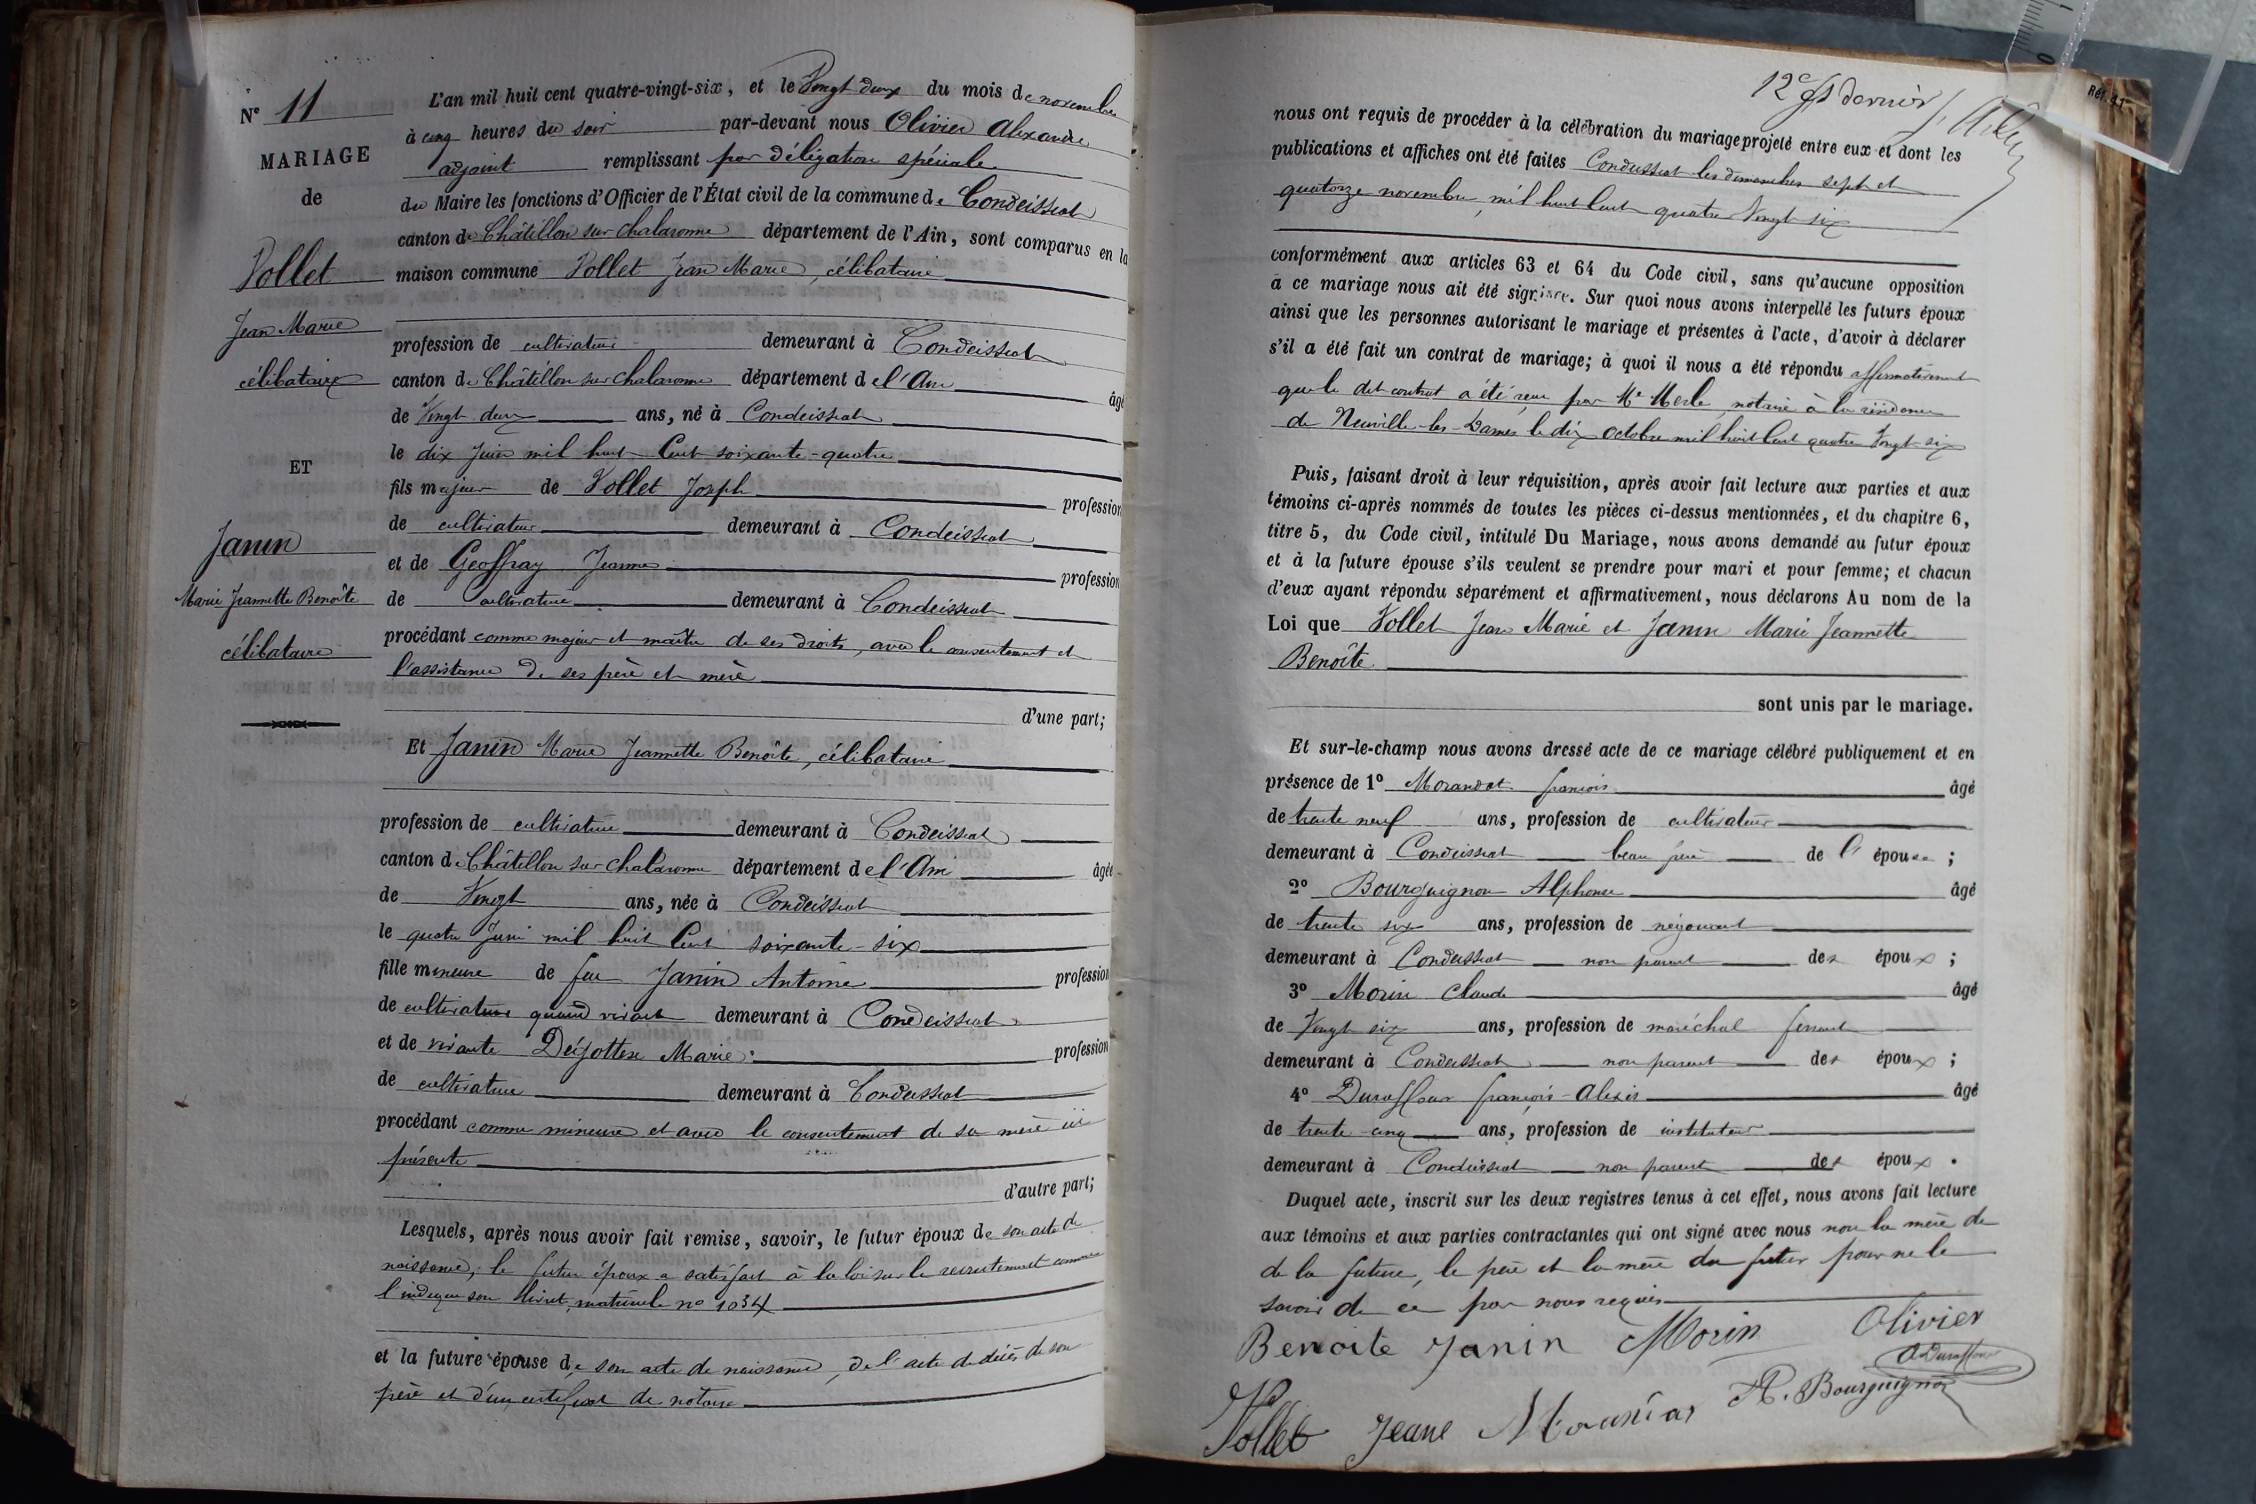 Nº 11
MARIAGE
de
Vollet
Jean Marie
célibataire
ET
Janin
Marie Jeannette Benoîte
célibataire
L'an mil huit cent quatre-vingt-six, et le Vingt deux du mois de novembre
à cinq heures du soir par-devant nous Olivier Alexandre
adjoint remplissant par délégation spéciale
du Maire les fonctions d'Officier de l'État civil de la commune de Condeissiat
canton de Châtillon sur Chalaronne département de l'Ain, sont comparus en la
maison commune Vollet Jean Marie, célibataire
profession de cultivateur demeurant à Condeissiat
canton de Châtillon sur Chalaronne département de l'Ain âgé
de Vingt deux ans, né à Condeissiat
le dix Juin mil huit Cent soixante-quatre
fils majeur de Vollet Joseph profession
de cultivateur demeurant à Condeissiat
et de Geoffray Jeanne profession
de cultivatrice demeurant à Condeissiat
procédant comme majeur et maître de ses droits, avec le consentement et
l'assistance de ses père et mère
d'une part;
Et Janin Marie Jeannette Benoîte, célibataire
profession de cultivatrice demeurant à Condeissiat
canton de Châtillon sur Chalaronne département de l'Ain âgée
de Vingt ans, née à Condeissiat
le quatre Juin mil huit Cent soixante-six
fille mineure de feu Janin Antoine profession
de cultivateur quand vivait demeurant à Condeissiat
et de vivante Marie profession
de cultivatrice demeurant à Condeissiat
procédant comme mineure et avec le consentement de sa mère ici
présente
d'autre part;
Lesquels, après nous avoir fait remise, savoir, le futur époux de son acte de
naissance, le futur époux a satisfait à la loi sur le recrutement comme
l'indique son livret, matricule no 1034
et la future épouse de son acte de naissance, de l'acte de décès de son
père et d'un certificat de notaire
12e et dernier
Rét. 41
nous ont requis de procéder à la célébration du mariage projeté entre eux et dont les
publications et affiches ont été faites Condeissiat les dimanches sept et
quatorze novembre, mil huit Cent quatre Vingt six
conformément aux articles 63 et 64 du Code civil, sans qu'aucune opposition
à ce mariage nous ait été signifiée. Sur quoi nous avons interpellé les futurs époux
ainsi que les personnes autorisant le mariage et présentes à l'acte, d'avoir à déclarer
s'il a été fait un contrat de mariage; à quoi il nous a été répondu affirmativement
que le dit contrat a été reçu par Me Merle notaire à la résidence
de Neuville-les-Dames le dix octobre mil huit Cent quatre Vingt six
Puis, faisant droit à leur réquisition, après avoir fait lecture aux parties et aux
témoins ci-après nommés de toutes les pièces ci-dessus mentionnées, et du chapitre 6,
titre 5, du Code civil, intitulé Du Mariage, nous avons demandé au futur époux
et à la future épouse s'ils veulent se prendre pour mari et pour femme; et chacun
d'eux ayant répondu séparément et affirmativement, nous déclarons Au nom de la
Loi que Vollet Jean Marie et Janin Marie Jeannette
Benoîte
sont unis par le mariage.
Et sur-le-champ nous avons dressé acte de ce mariage célébré publiquement et en
présence de 1º Morandat françois âgé
de trente neuf ans, profession de cultivateur
demeurant à Condeissiat beau frère de l' épouse ;
2º Bourguignon Alphonse âgé
de trente six ans, profession de négociant
demeurant à Condeissiat non parent des époux ;
3º Morin Claude âgé
de Vingt six ans, profession de maréchal ferrant
demeurant à Condeissiat non parent des époux ;
4º Duraffour françois-Alexis âgé
de trente-cinq ans, profession de instituteur
demeurant à Condeissiat non parent des époux .
Duquel acte, inscrit sur les deux registres tenus à cet effet, nous avons fait lecture
aux témoins et aux parties contractantes qui ont signé avec nous non la mère de
de la future, le père et la mère du futur pour ne le
savoir de ce par nous requis
Benoite Janin Morin Olivier
Duraffour
Vollet Jeane A. Bourguignon